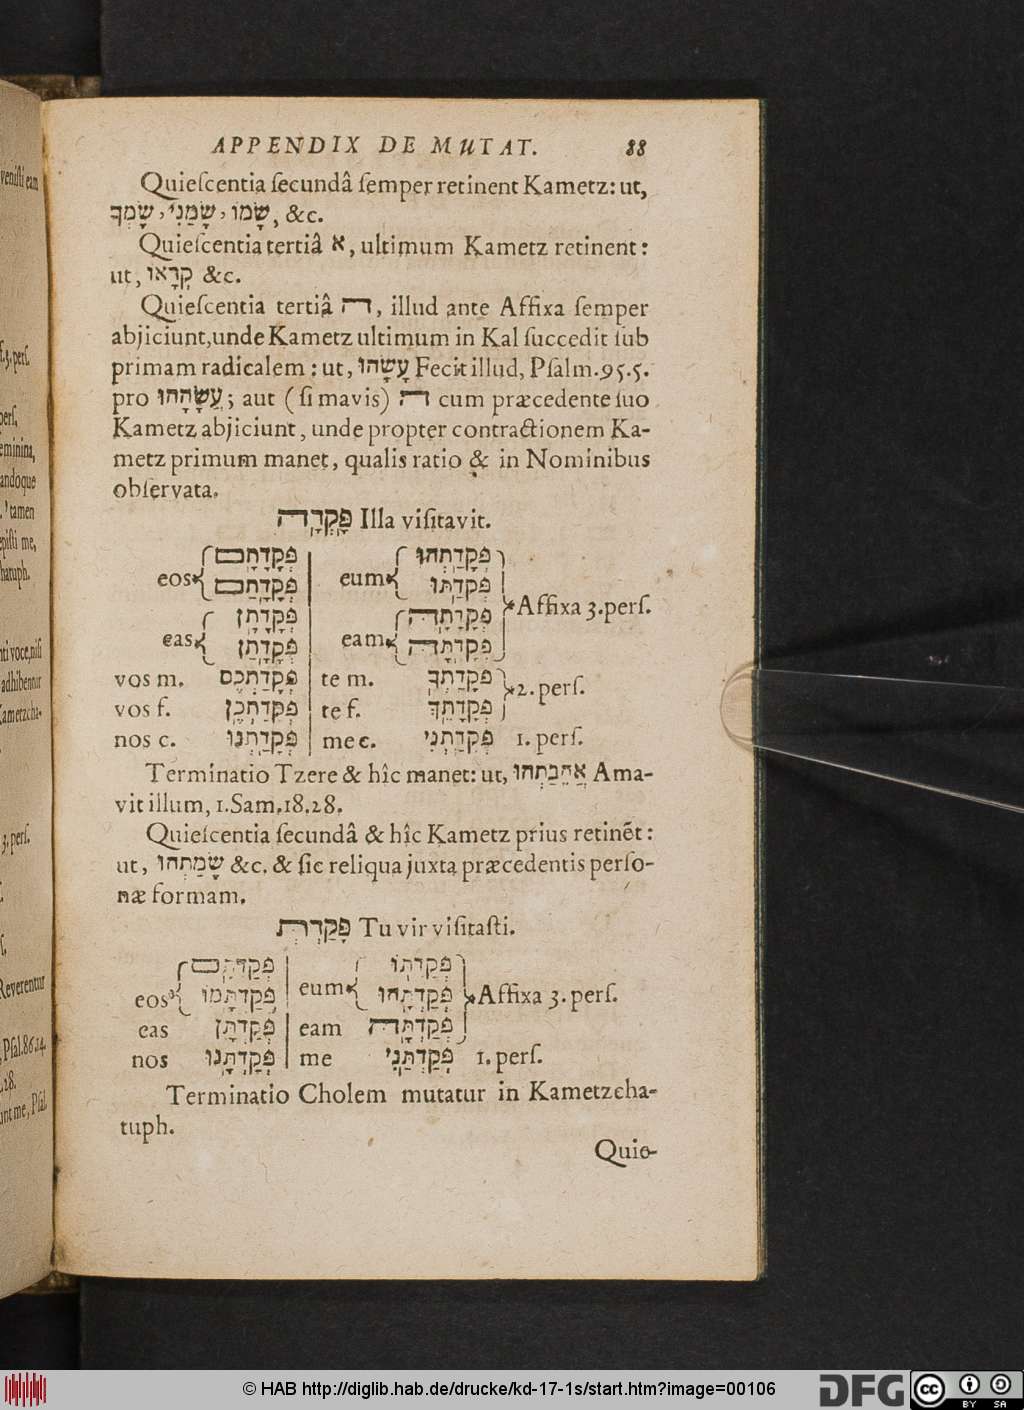 APPENDIX DE MUTAT. 88
Quiescentia secundâ semper retinent Kametz: ut,
שָׂמוֹ, שָׂמַנִי, שָׂמְךָ, &c.
Quiescentia tertiâ א, ultimum Kametz retinent:
ut, קְרָאוֹ &c.
Quiescentia tertiâ ה, illud ante Affixa semper
abjiciunt, unde Kametz ultimum in Kal succedit sub
primam radicalem: ut, עָשָׂהוּ Fecit illud, Psalm. 95. 5.
pro עֲשָׂהָהוּ; aut (si mavis) ה cum præcedente suo
Kametz abjiciunt, unde propter contractionem Ka-
metz primum manet, qualis ratio & in Nominibus
observata.
פָּקְדָה Illa visitavit.
eos פְּקָדָתָם | eum פְּקָדַתְהוּ
פְּקָדָתַם | פְּקָדַתּוּ Affixa 3. pers.
eas פְּקָדָתָן | eam פְּקָדַתָה
פְּקָדָתַן | פְּקָדָתָה
vos m. פְּקָדַתְכֶם | te m. פְּקָדַתְךָ 2. pers.
vos f. פְּקָדַתְכֶן | te f. פְּקָדָתֵךְ
nos c. פְּקָדַתְנוּ | me c. פְּקָדַתְנִי 1. pers.
Terminatio Tzere & hîc manet: ut, אֲהֵבַתְהוּ Ama-
vit illum, 1. Sam. 18. 28.
Quiescentia secundâ & hîc Kametz prius retinẽt:
ut, שָׂמַתְהוּ &c. & sic reliqua juxta præcedentis perso-
næ formam.
פָּקַדְתְּ Tu vir visitasti.
eos פְּקַדְתָּם | eum פְּקַדְתּוֹ
פְּקַדְתָּמוֹ | פְּקַדְתָּהוּ Affixa 3. pers.
eas פְּקַדְתָּן | eam פְּקַדְתָּה
nos פְּקַדְתָּנוּ | me פְּקַדְתַּנִי 1. pers.
Terminatio Cholem mutatur in Kametzcha-
tuph.
Quie-
© HAB http://diglib.hab.de/drucke/kd-17-1s/start.htm?image=00106
DFG
cc BY SA